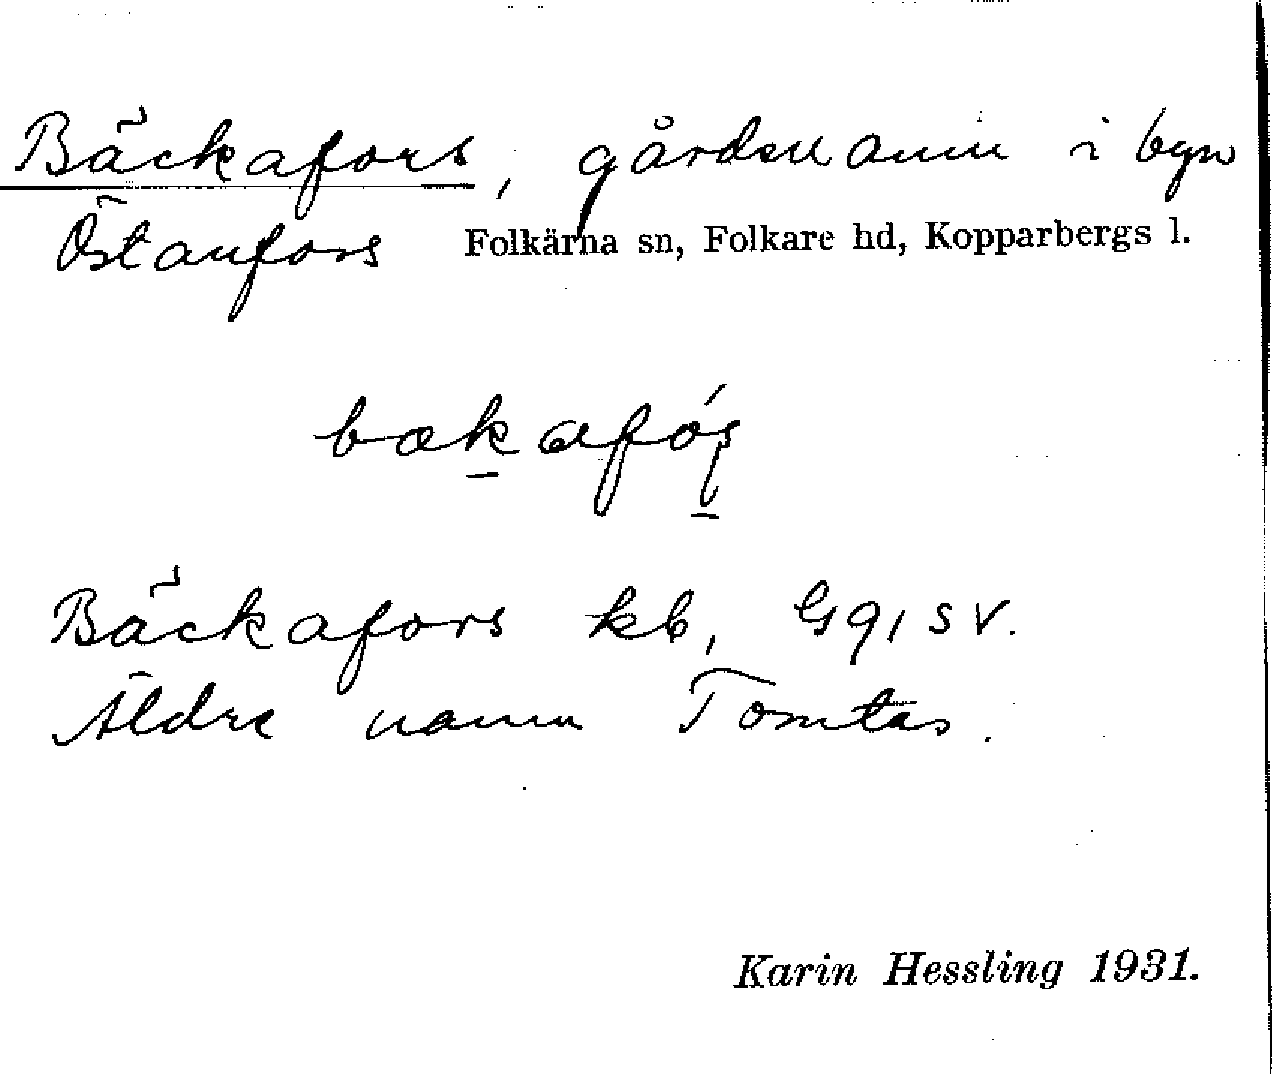 Bäckafors, gårdsnamn i byn
Östanfors Folkärna sn, Folkare hd, Kopparbergs l.
Bäckafors kb, G91 SV.
Äldre namn Tomtas.
Karin Hessling 1931.